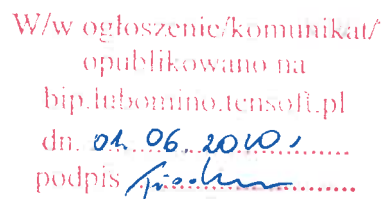 W/w ogłoszenie/komunikat/
opublikowano na
bip.lubomino.tensoft.pl
dn. 01. 06. 2010,
podpis